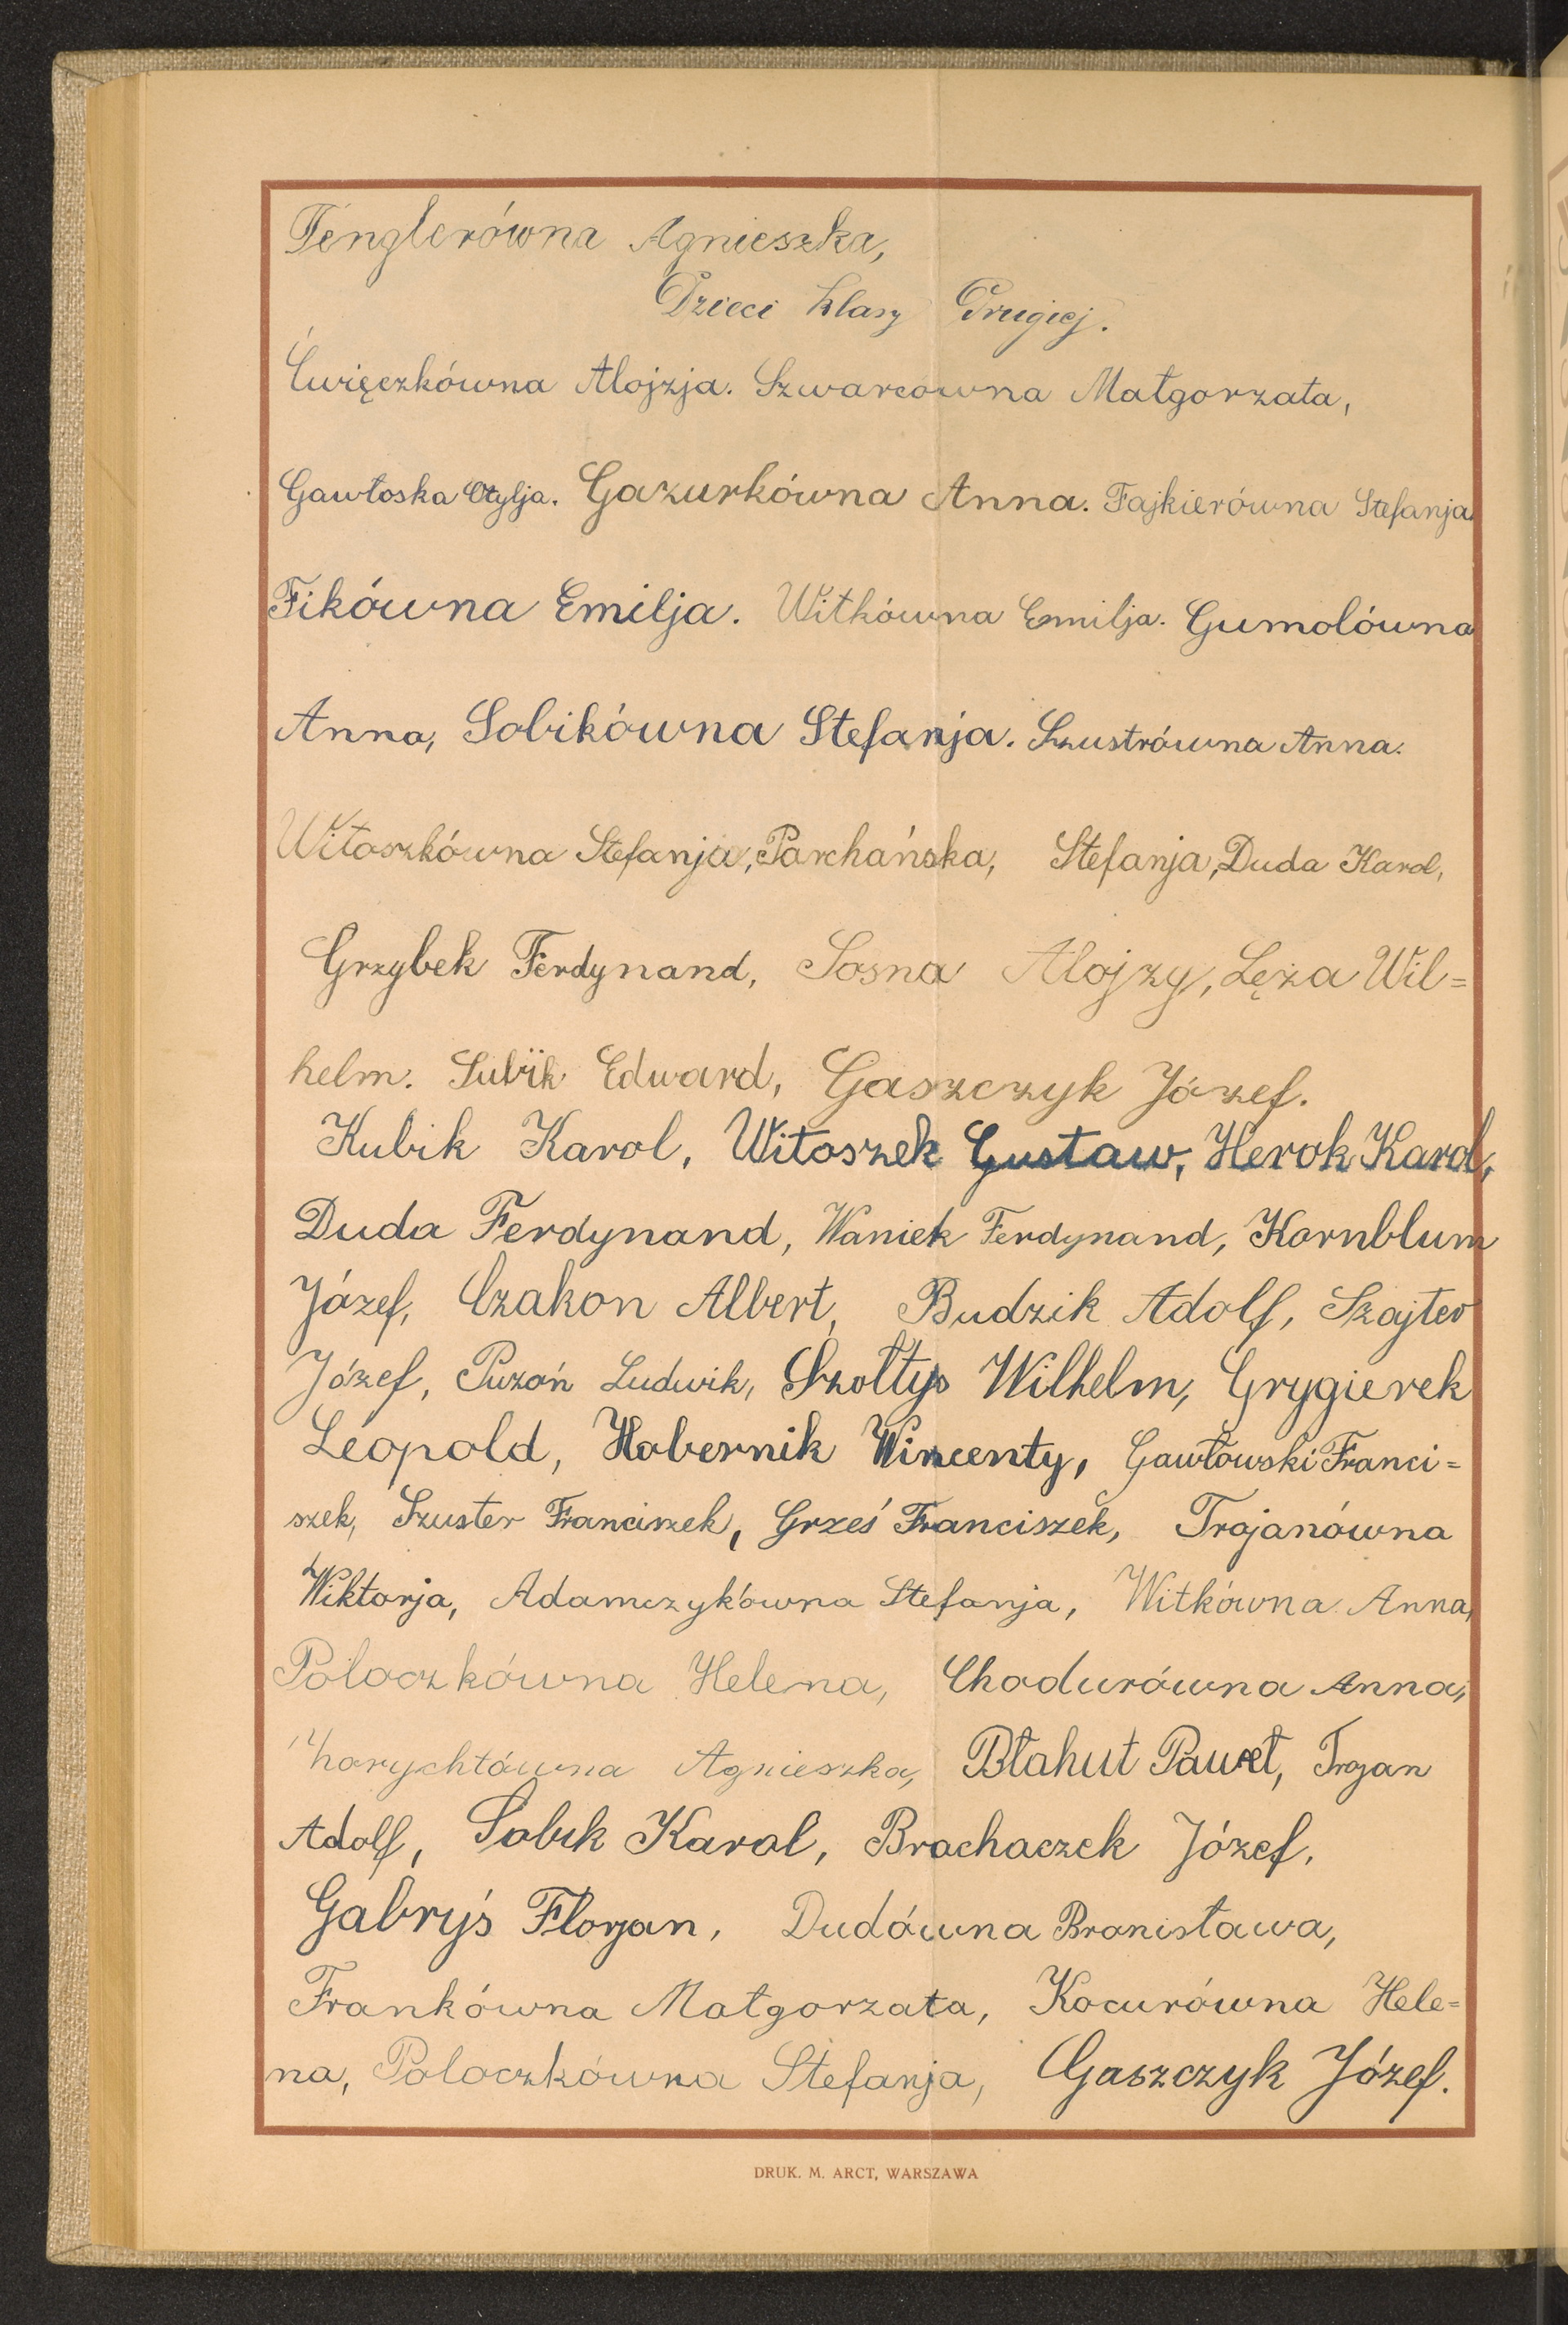 Tenglerówna Agnieszka,
Dzieci klasy Drugiej.
Ćwięczkówna Alojzja. Szwarcówna Małgorzata,
Gawłoska Otylja. Gazurkówna Anna. Fajkierówna Stefanja.
Fikówna Emilja. Witkówna Emilja. Gumolówna
Anna, Sobikówna Stefanja. Szustrówna Anna.
Witoszkówna Stefanja, Parchańska, Stefanja, Duda Karol,
Grzybek Ferdynand, Sosna Alojzy, Lęża Wil=
helm. Edward, Gaszczyk Józef.
Kubik Karol, Witoszek Gustaw, Herok Karol,
Duda Ferdynand, Waniek Ferdynand, Kornblum
Józef, Czakon Albert, Budzik Adolf, Szajter
Józef, Puzoń Ludwik, Szołtys Wilhelm, Grygierek
Leopold, Habernik Wincenty, Gawłowski Franci=
szek, Szuster Franciszek, Grześ Franciszek, Trojanówna
Wiktorja, Adamczykówna Stefanja, Witkówna Anna,
Poloczkówna Helena, Chodurówna Anna,
Agnieszka, Błahut Paweł, Trojan
Adolf, Sobik Karol, Brachaczek Józef,
Gabryś Florjan, Dudówna Bronisława,
Frankówna Małgorzata, Kocurówna Hele=
na, Poloczkówna Stefanja, Gaszczyk Józef.
DRUK. M. ARCT, WARSZAWA